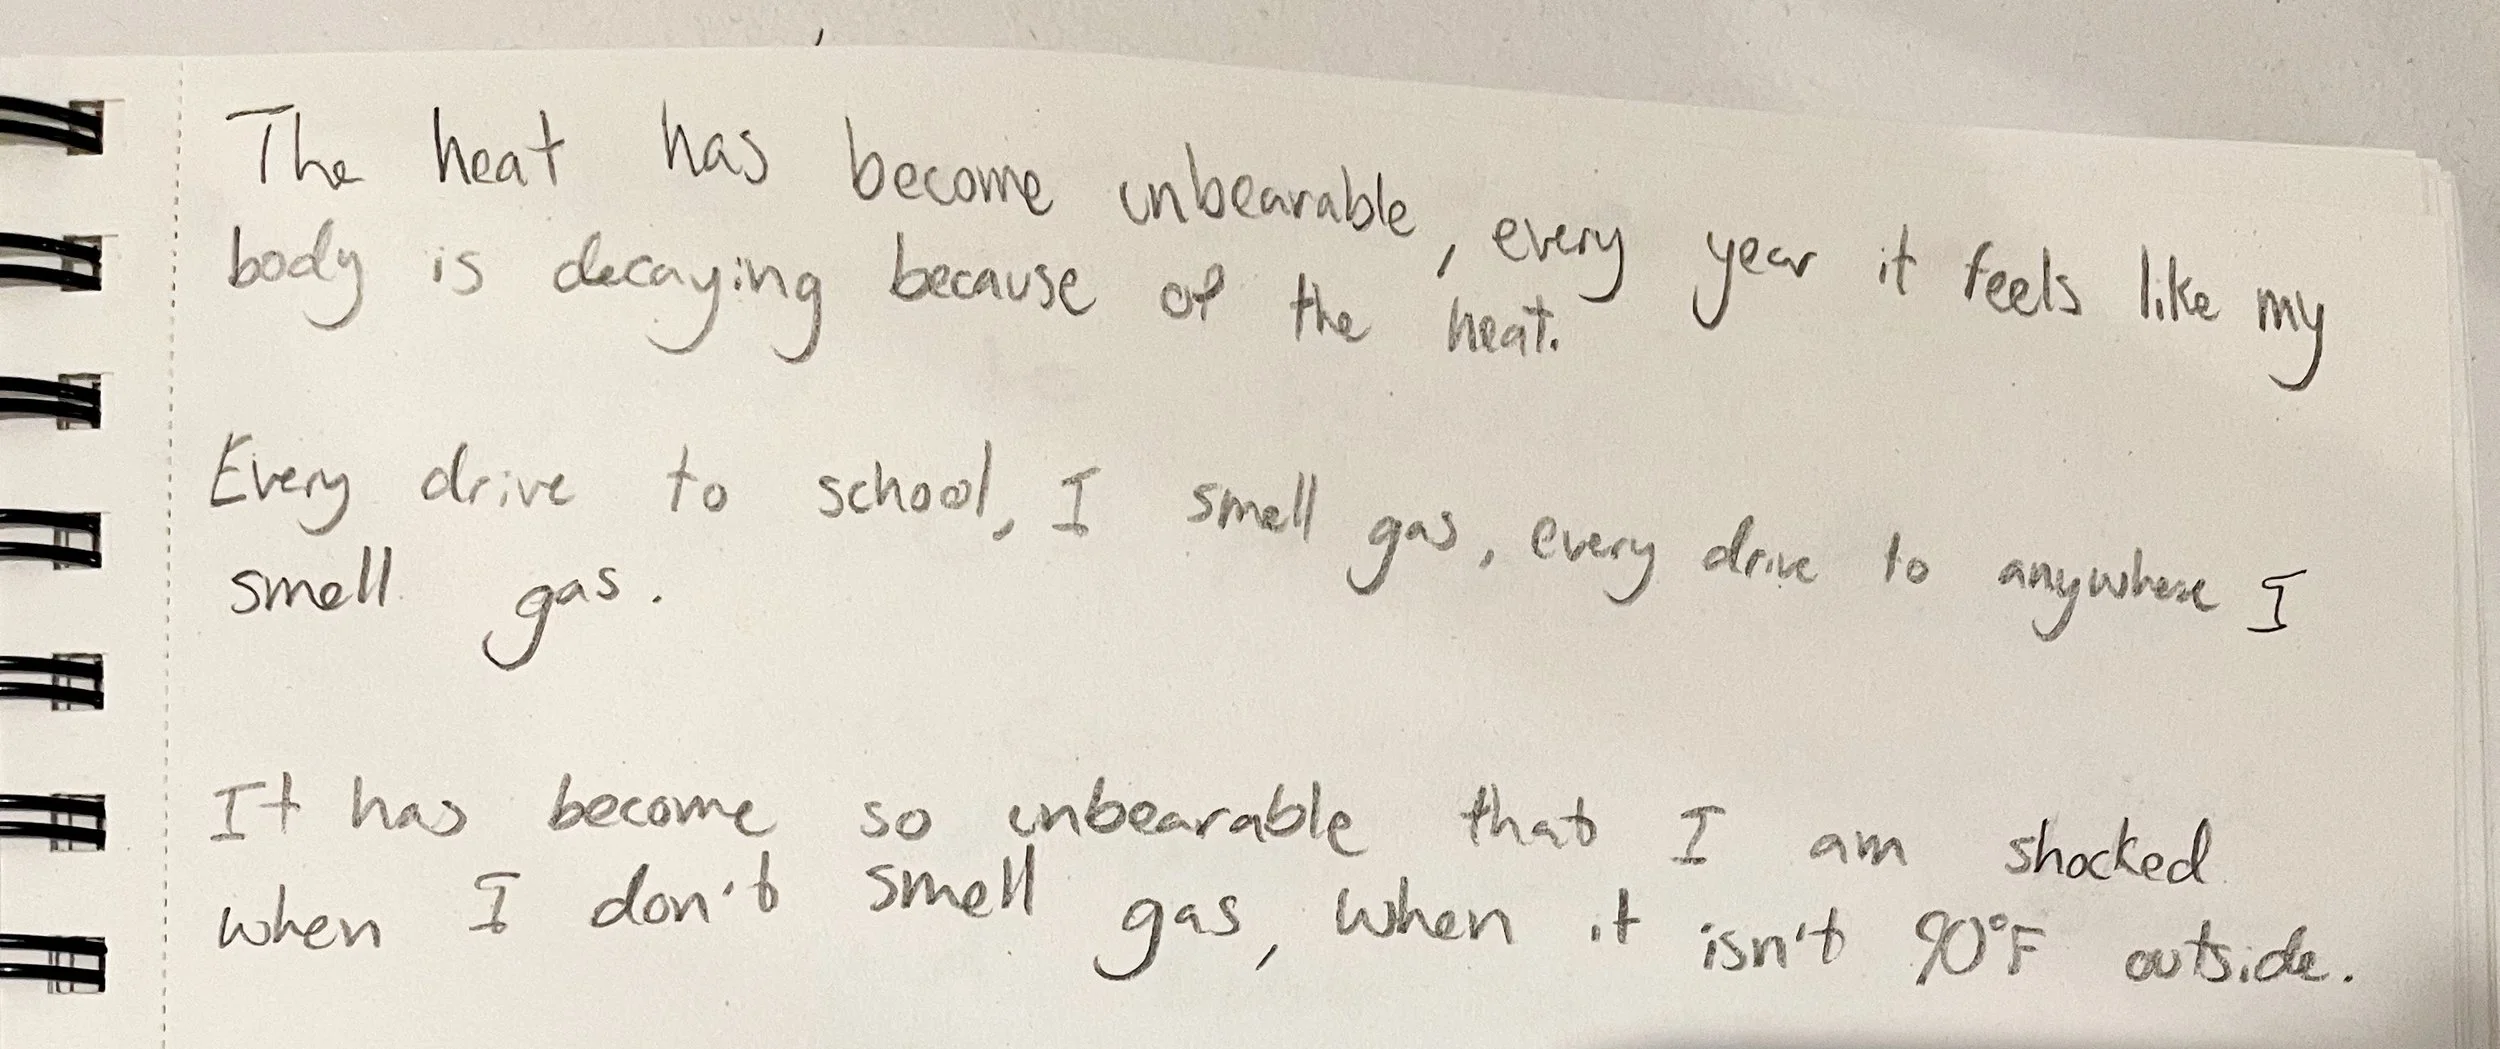 The heat has become unbearable, every year it feels like my
body is decaying because of the heat.
Every drive to school, I smell gas, every drive to anywhere I
smell gas.
It has become so unbearable that I am shocked
when I don't smell gas, when it isn't 90°F outside.